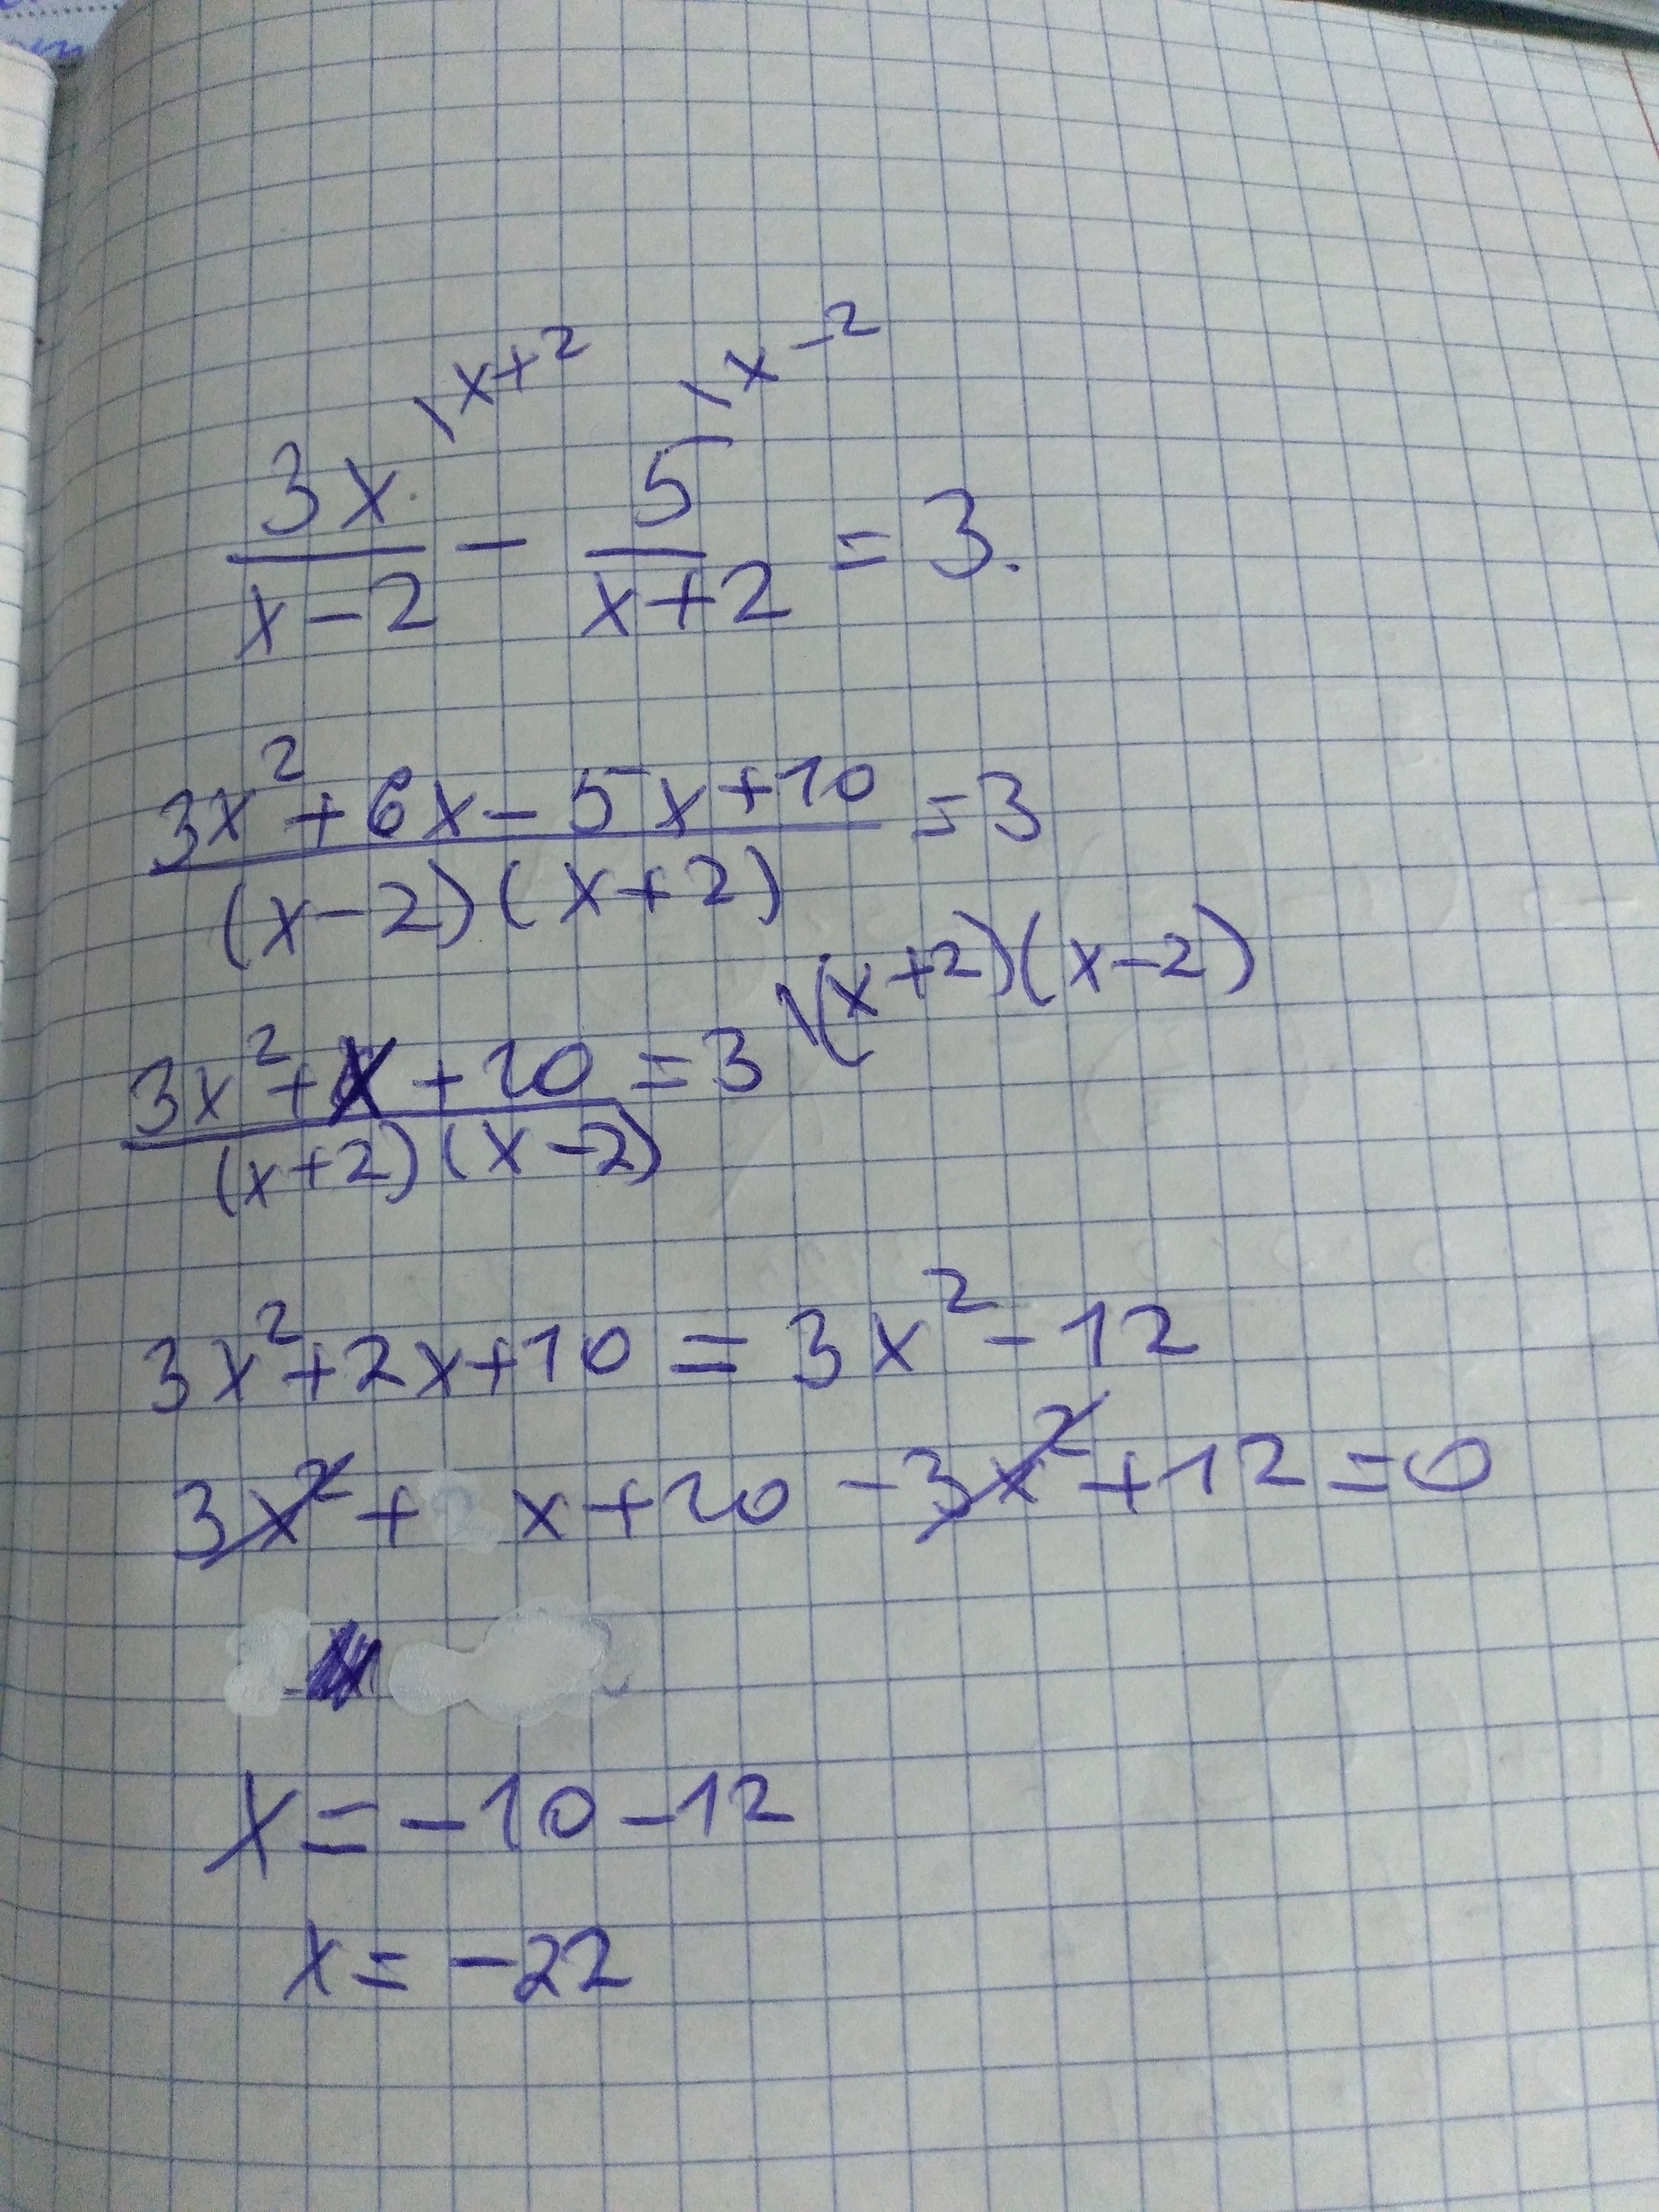 \x+2 \x-2
3x/(x-2) - 5/(x+2) = 3.
(3x²+6x-5x+10)/((x-2)(x+2)) =3
(3x²+x+10)/((x+2)(x-2)) =3 \(x+2)(x-2)
3x²+2x+10 = 3x²-12
3x²+ x+10 -3x²+12=0
x=-10-12
x=-22